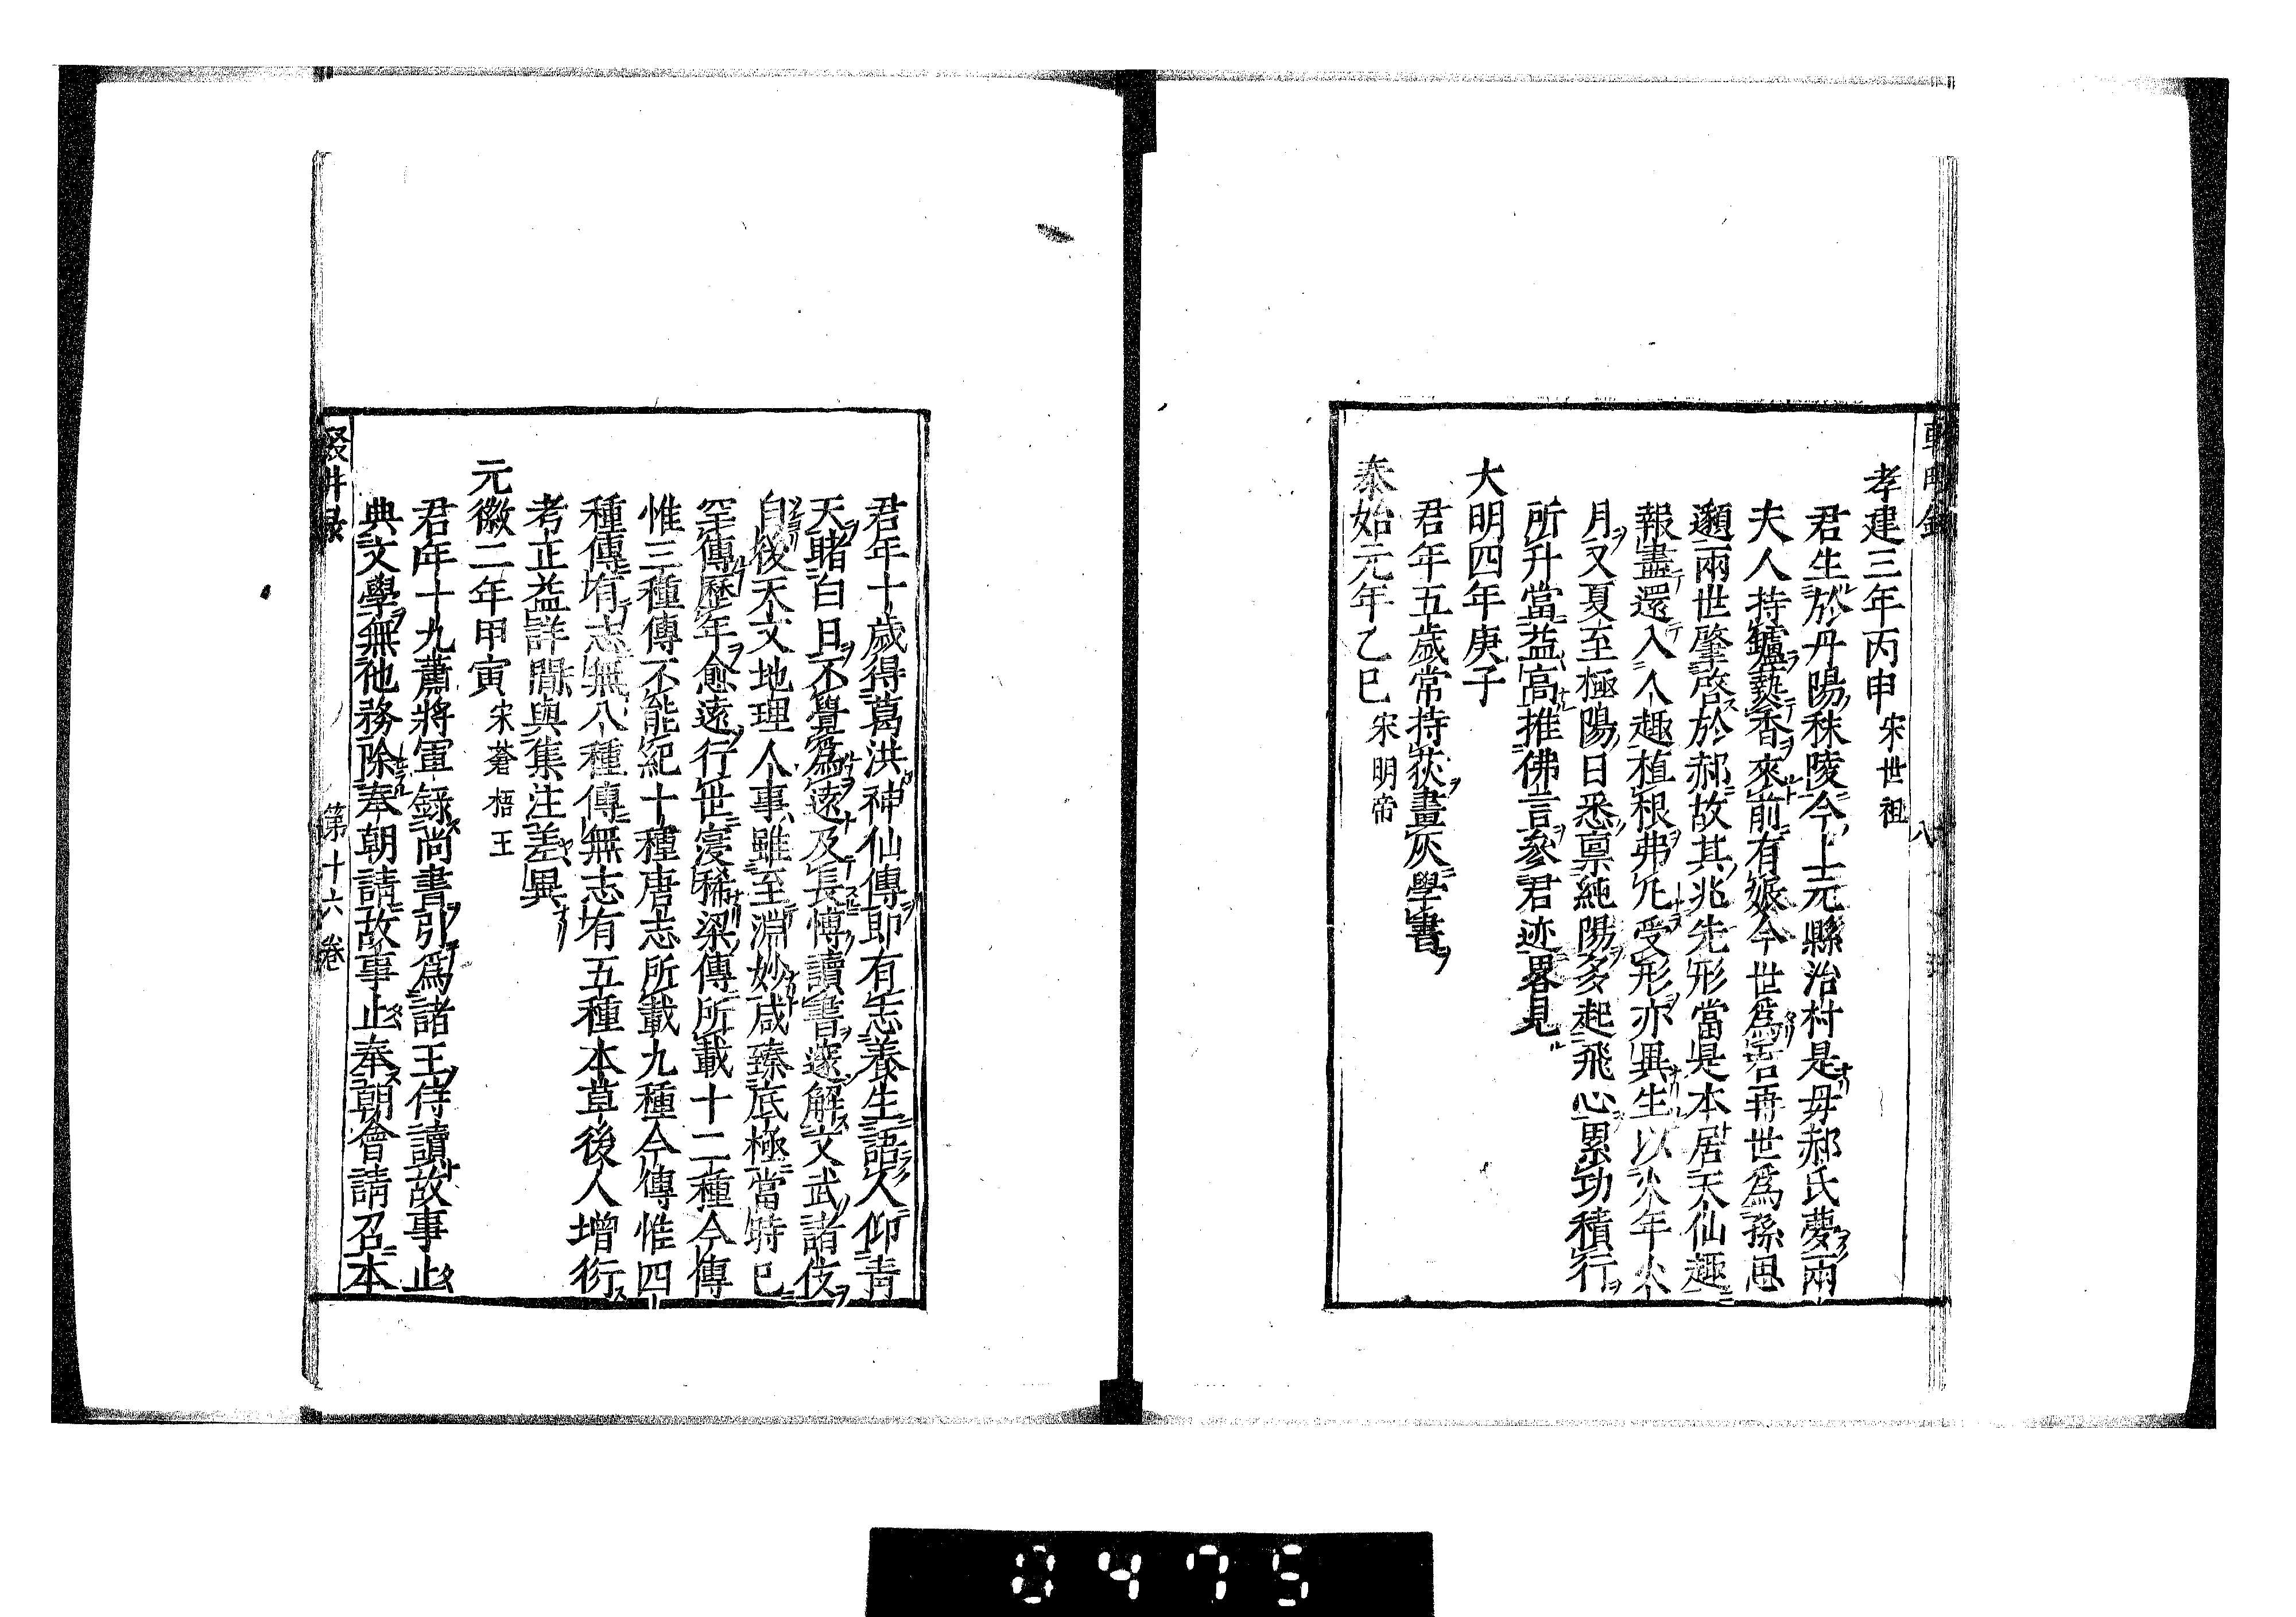 孝建三年丙申宋世祖
君生於丹陽秣陵今上元縣治村是母郝氏夢兩
夫人持鑪爇香來前有娠今世爲君再世爲孫思
邈兩世肇啓於郝故其兆先形當是本居天仙趣
報盡還入人趣植根弗凡受形亦異生以火年火
月又夏至極陽日悉禀純陽多起飛心累功積行
所升當益高推佛言參君迹畧見
大明四年庚子
君年五歲常持荻畫灰學書
泰始元年乙巳宋明帝
八
君年十歲得葛洪神仙傳即有志養生語人仰青
天睹白日不覺爲遠及長愽讀書遂解文武諸伎
自後天文地理人事雖至淵妙咸臻底極當時已
罕傳歷年愈遠行世寖稀梁傳所載十二種今傳
惟三種傳不能紀十種唐志所載九種今傳惟四
種傳有志無八種傳無志有五種本草後人增衍
考正益詳間與集注差異
元徽二年甲寅宋蒼梧王
君年十九蕭將軍錄尚書引爲諸王侍讀故事止
典文學無他務除奉朝請故事止奉朝會請召本
輟畊录
第十六卷
0475